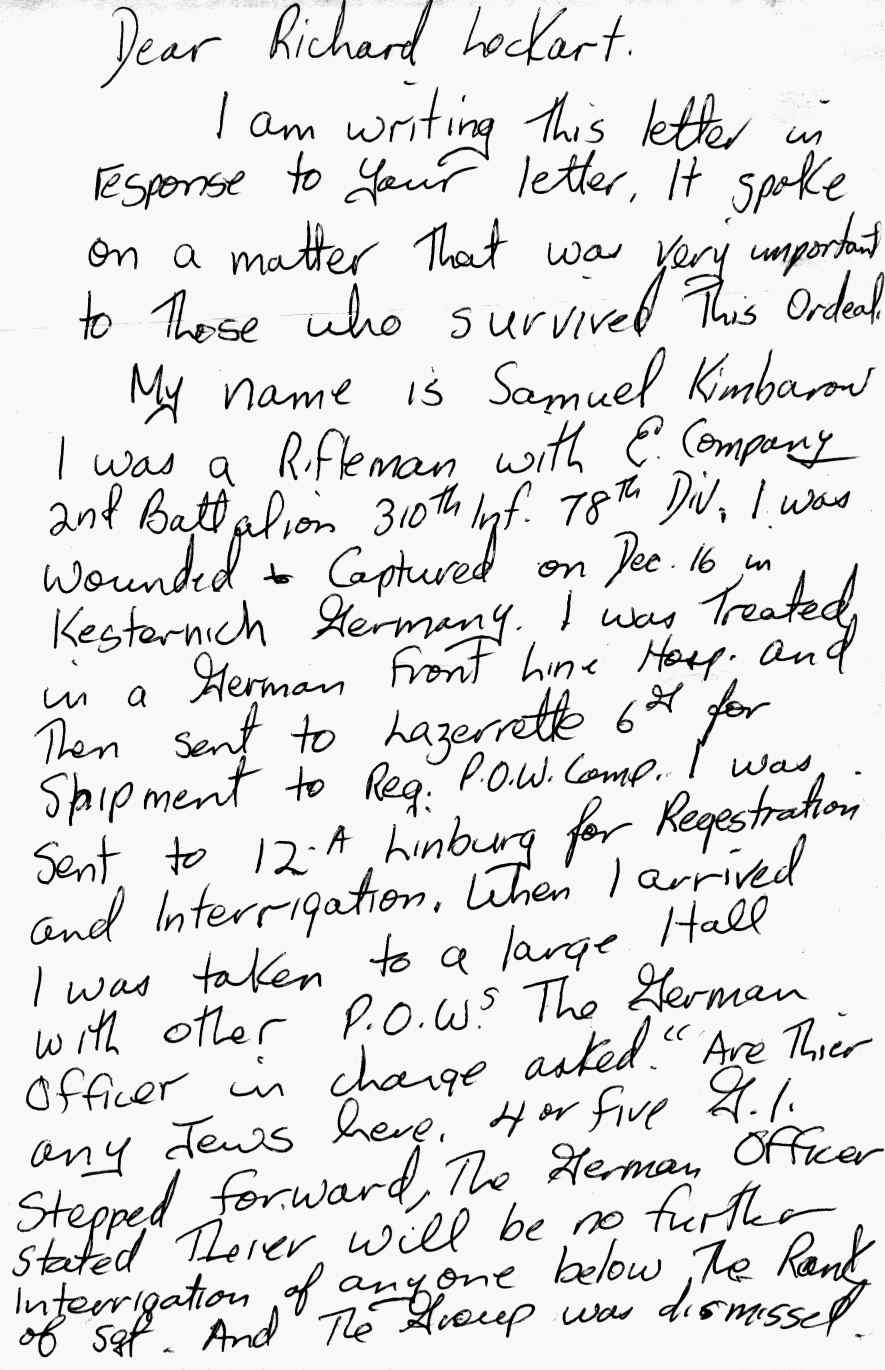 Dear Richard Lockart.
I am writing this letter in
response to your letter, It spoke
on a matter that was very important
to those who survived This Ordeal.
My name is Samuel Kimbarow
I was a Rifleman with E. Company
2nd Battalion 310th Inf. 78th Div, I was
wounded & Captured on Dec. 16 in
Kesternich Germany. I was Treated,
in a German front Line Hosp. and
Then sent to Lazerrette 6G for
Shipment to Reg. P.O.W. Camp. I was
Sent to 12-A Linburg for Regestration
and Interrigation. When I arrived
I was taken to a large Hall
with other P.O.W.s The German
Officer in charge asked. "Are Thier
any Jews here. 4 or five G.I.
Stepped forward, The German Officer
Stated Theier will be no further
Interrigation of anyone below The Rank
of Sgt. And The Group was dismissed.